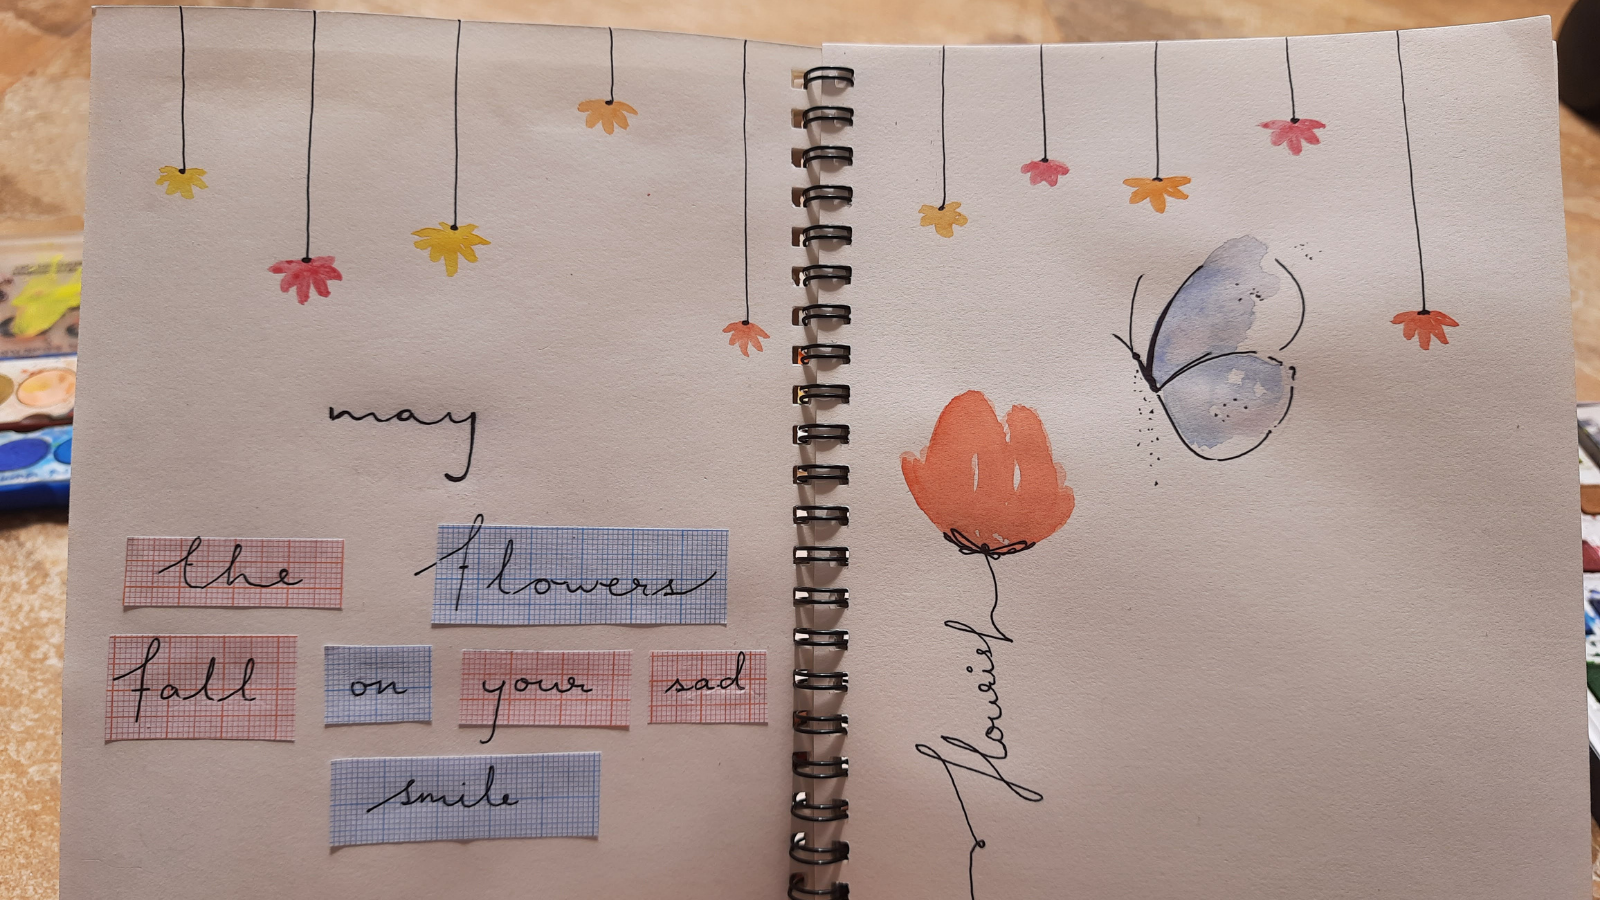 may
the flowers
fall on your sad
smile
flourish